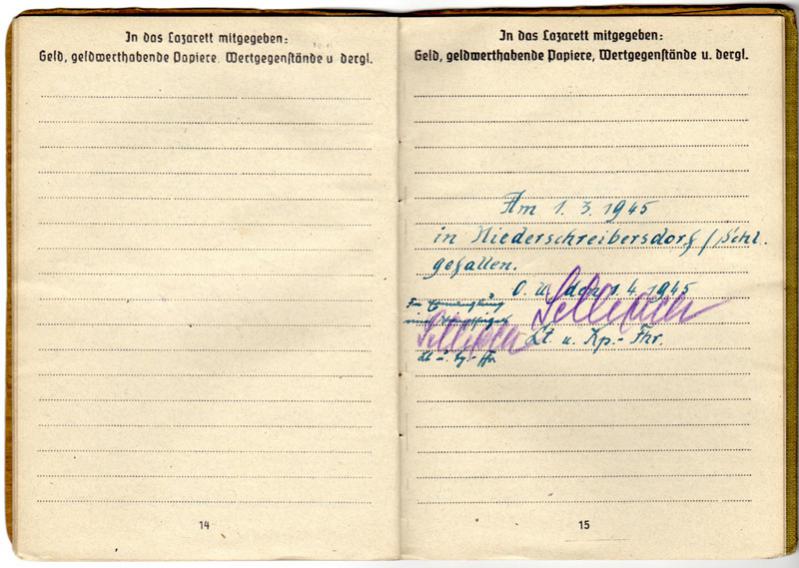 In das Lazarett mitgegeben:
Geld, geldwerthabende Papiere, Wertgegenstände u dergl.
14
In das Lazarett mitgegeben:
Geld, geldwerthabende Papiere, Wertgegenstände u. dergl.
Am 1. 3. 1945
in Niederschreibersdorf/Schl.
gefallen.
O. U. den 1. 4. 1945
Lt. u. Kp.-Fhr.
Lt. u. Kp.-Fhr.
15